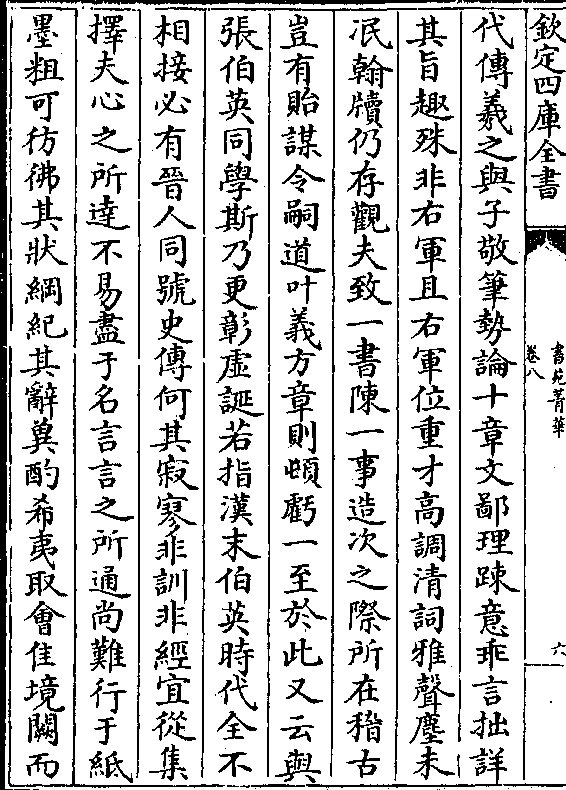 欽定四庫全書
書苑菁華
卷八
六
代傳羲之與子敬筆勢論十章文鄙理踈意乖言拙詳
其旨趣殊非右軍且右軍位重才高調清詞雅聲塵未
泯翰牘仍存觀夫致一書陳一事造次之際所在稽古
豈有貽謀令嗣道叶義方章則頓虧一至於此又云與
張伯英同學斯乃更彰虛誕若指漢末伯英時代全不
相接必有晉人同號史傳何其寂寥非訓非經宜從集
擇夫心之所達不易盡于名言言之所通尚難行于紙
墨粗可彷彿其狀綱紀其辭兾酌希夷取會佳境闕而